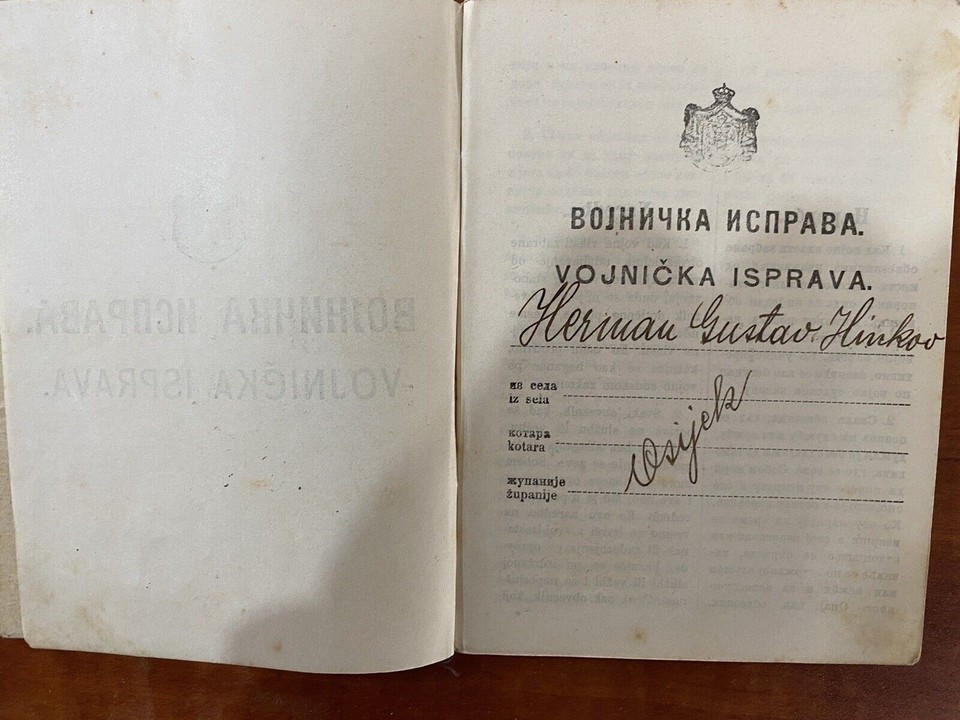 ВОЈНИЧКА ИСПРАВА.
VOJNIČKA ISPRAVA.
Herman Gustav Hinkov
из села
iz sela
котара
kotara
Osijek
жупаније
županije